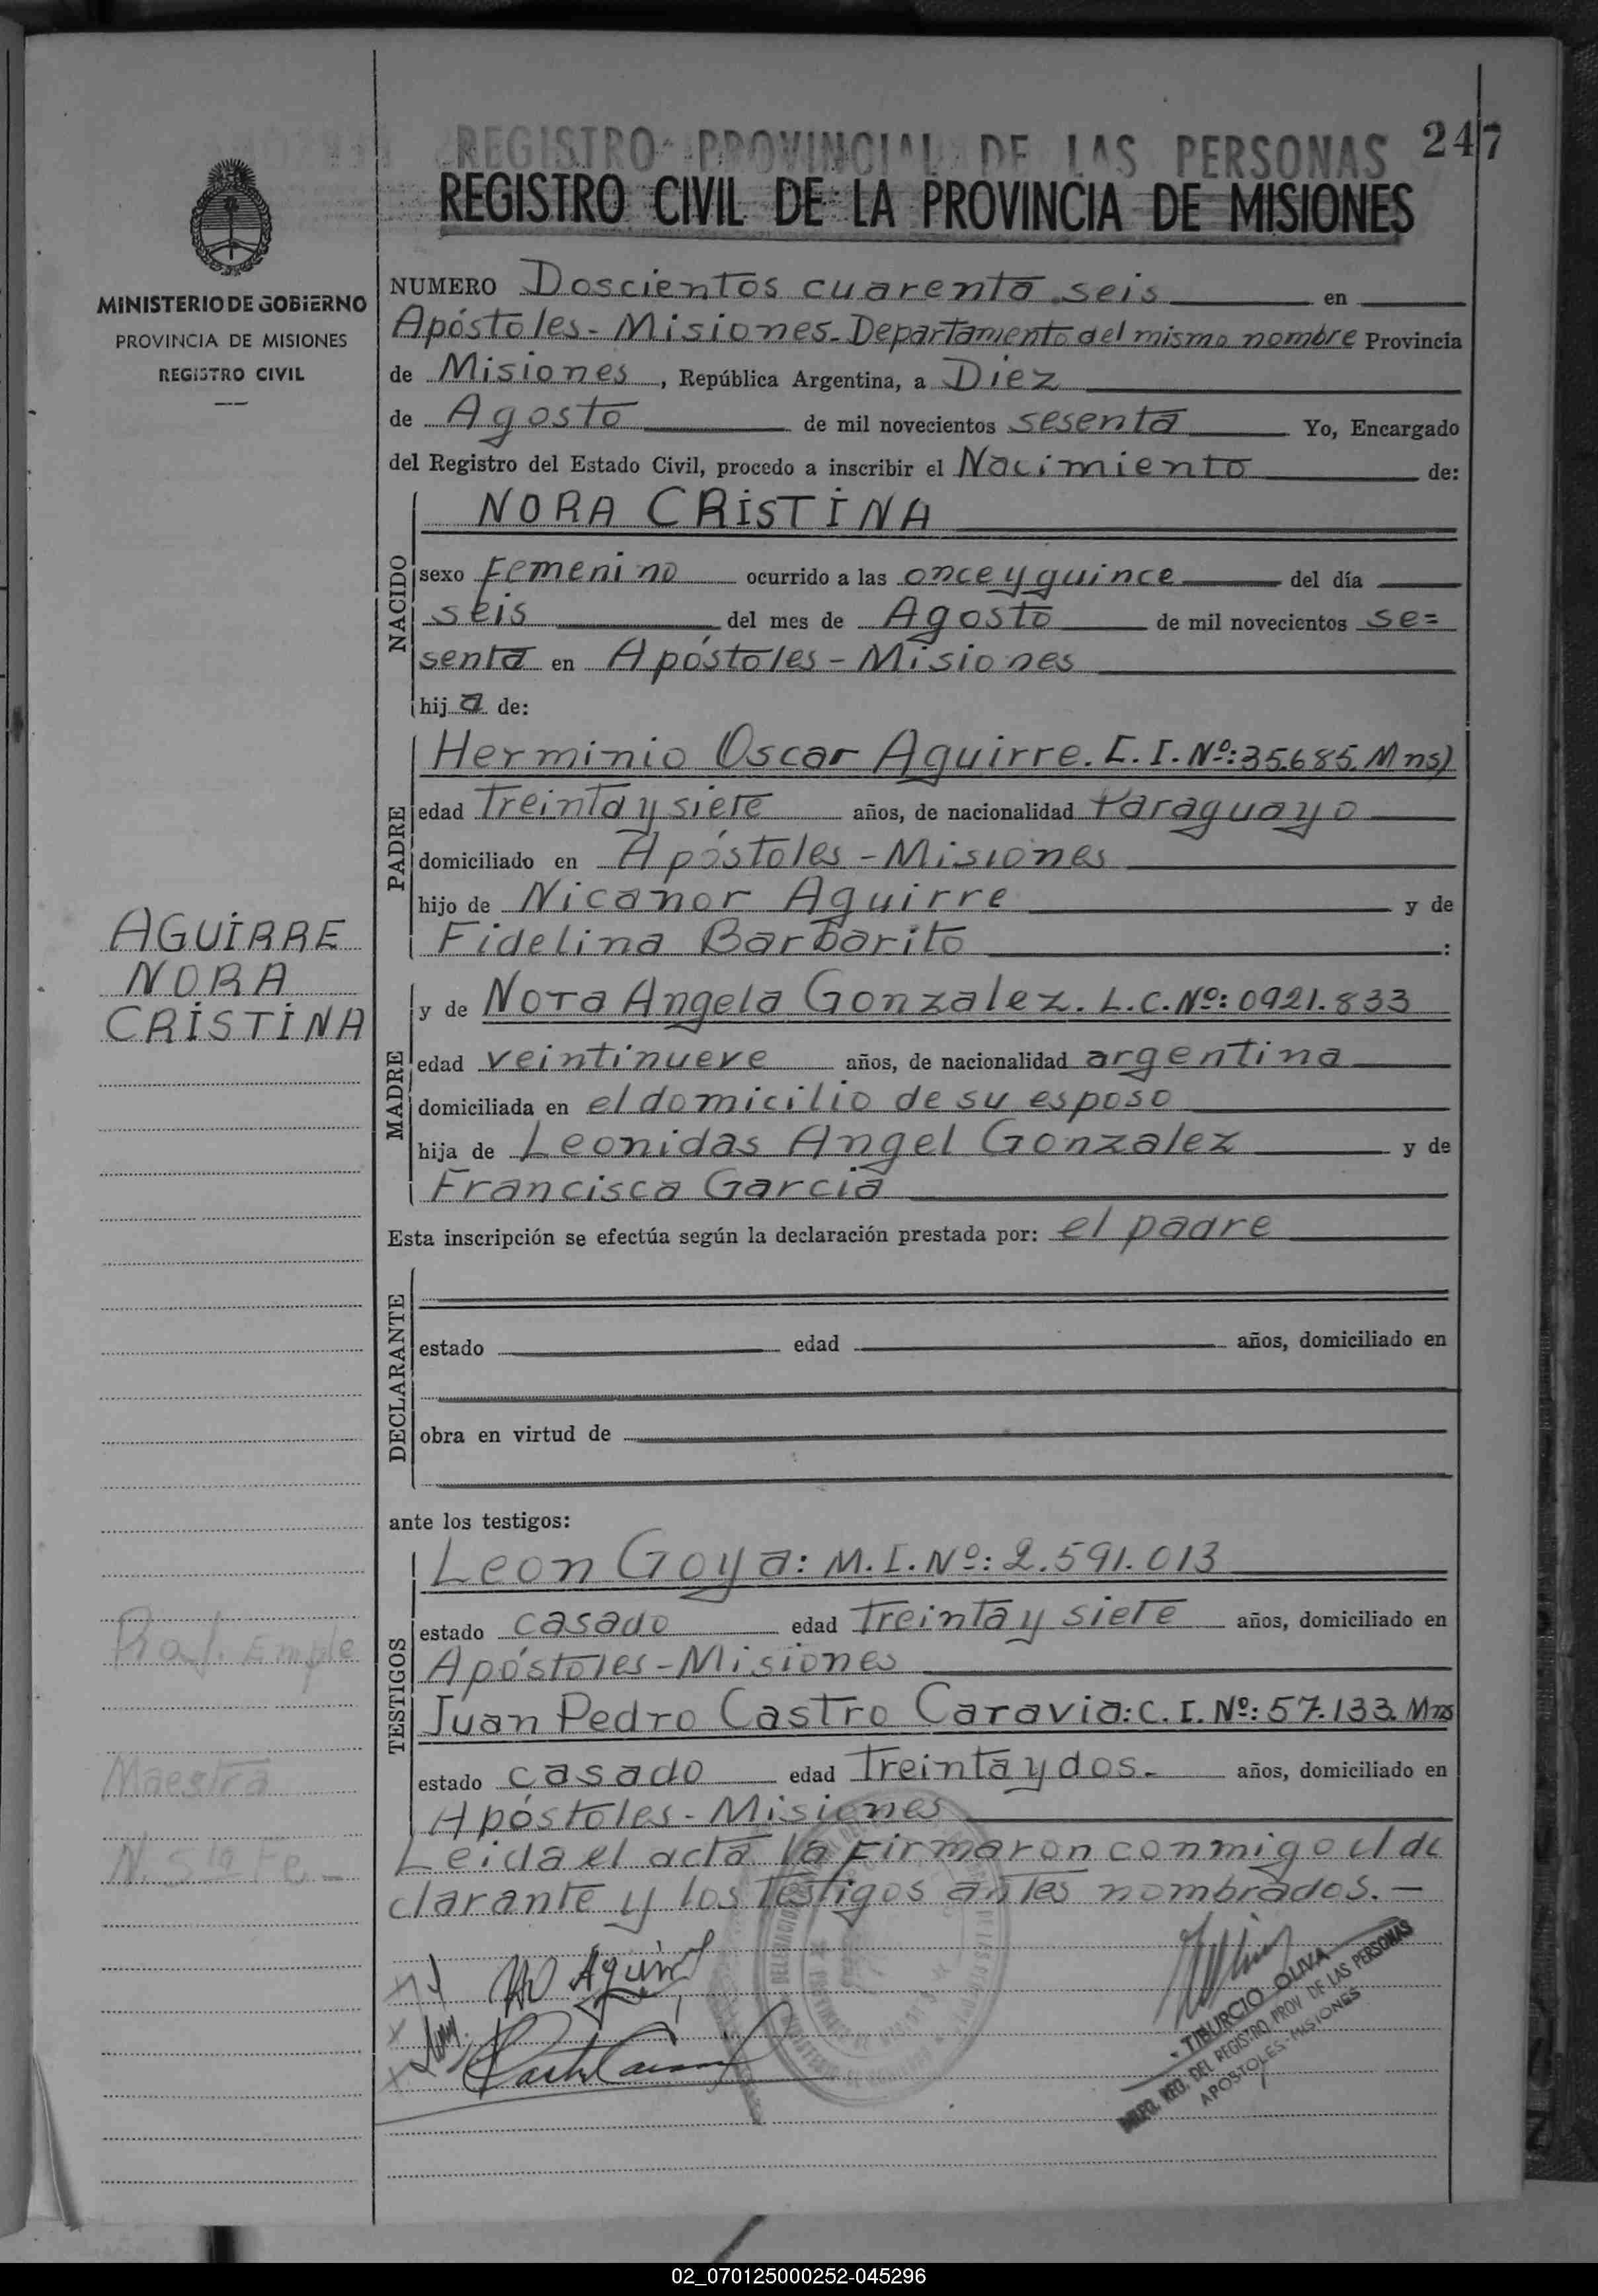 REGISTRO PROVINCIAL DE LAS PERSONAS
247
REGISTRO CIVIL DE LA PROVINCIA DE MISIONES
MINISTERIO DE GOBIERNO
PROVINCIA DE MISIONES
REGISTRO CIVIL
NUMERO Doscientos cuarenta seis en
Apóstoles - Misiones - Departamento del mismo nombre Provincia
de Misiones, República Argentina, a Diez
de Agosto de mil novecientos sesenta Yo, Encargado
del Registro del Estado Civil, procedo a inscribir el Nacimiento de:
NACIDO
NORA CRISTINA
sexo Femenino ocurrido a las once y quince del día
seis del mes de Agosto de mil novecientos se=
senta en Apóstoles - Misiones
hija de:
PADRE
Herminio Oscar Aguirre. C. I. Nº: 35.685. Mns)
edad Treinta y siete años, de nacionalidad Paraguayo
domiciliado en Apóstoles - Misiones
hijo de Nicanor Aguirre y de
Fidelina Barbarito :
AGUIRRE
NORA
CRISTINA
MADRE
y de Nora Angela Gonzalez. L.C. Nº: 0921.833
edad veintinueve años, de nacionalidad argentina
domiciliada en el domicilio de su esposo
hija de Leonidas Angel Gonzalez y de
Francisca Garcia
Esta inscripción se efectúa según la declaración prestada por: el padre
DECLARANTE
estado edad años, domiciliado en
obra en virtud de
ante los testigos:
TESTIGOS
Leon Goya: M. I. Nº: 2.591.013
estado casado edad Treinta y siete años, domiciliado en
Apóstoles - Misiones
Juan Pedro Castro Caravia: C. I. Nº: 57.133. Mns
estado casado edad Treinta y dos.- años, domiciliado en
Apóstoles - Misiones
Leida el acta la firmaron conmigo el de
clarante y los testigos antes nombrados. -
Prof. Emple
Maestra
N. Sta Fe. -
Aguirre
TIBURCIO OLIVA
DELEG. REG. DEL REGISTRO PROV DE LAS PERSONAS
APOSTOLES - MISIONES
02_070125000252-045296